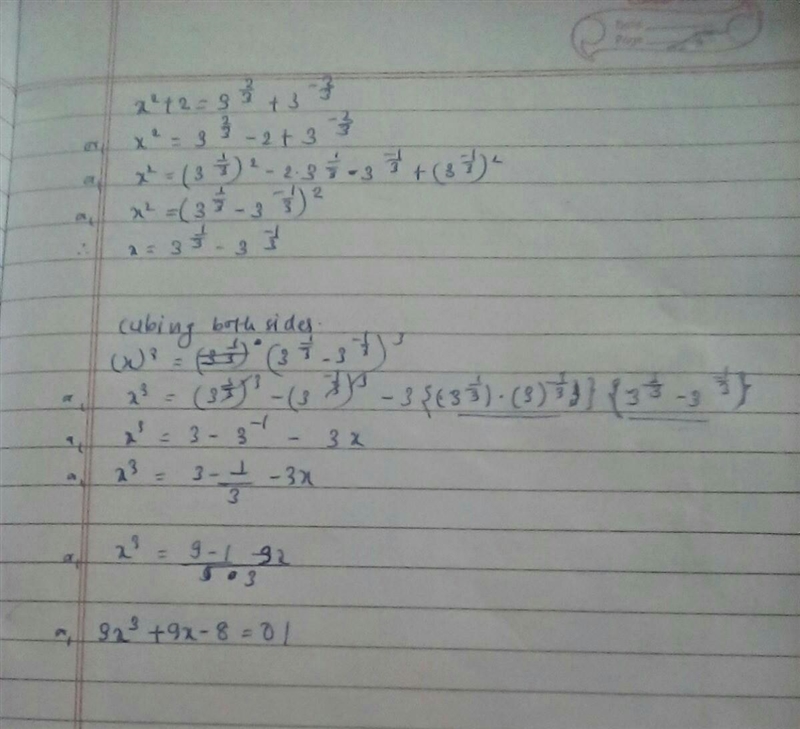 Date
Page
x² + 2 = 3^(2/3) + 3^(-2/3)
or, x² = 3^(2/3) - 2 + 3^(-2/3)
or, x² = (3^(1/3))² - 2·3^(1/3)·3^(-1/3) + (3^(-1/3))²
or, x² = (3^(1/3) - 3^(-1/3))²
∴ x = 3^(1/3) - 3^(-1/3)
Cubing both sides.
(x)³ = (3^(1/3) - 3^(-1/3))³
or, x³ = (3^(1/3))³ - (3^(-1/3))³ - 3{(3^(1/3))·(3)^(-1/3)}{3^(1/3) - 3^(-1/3)}
or, x³ = 3 - 3^(-1) - 3x
or, x³ = 3 - 1/3 - 3x
or, x³ = (9 - 1 - 9x)/3
or, 3x³ + 9x - 8 = 0